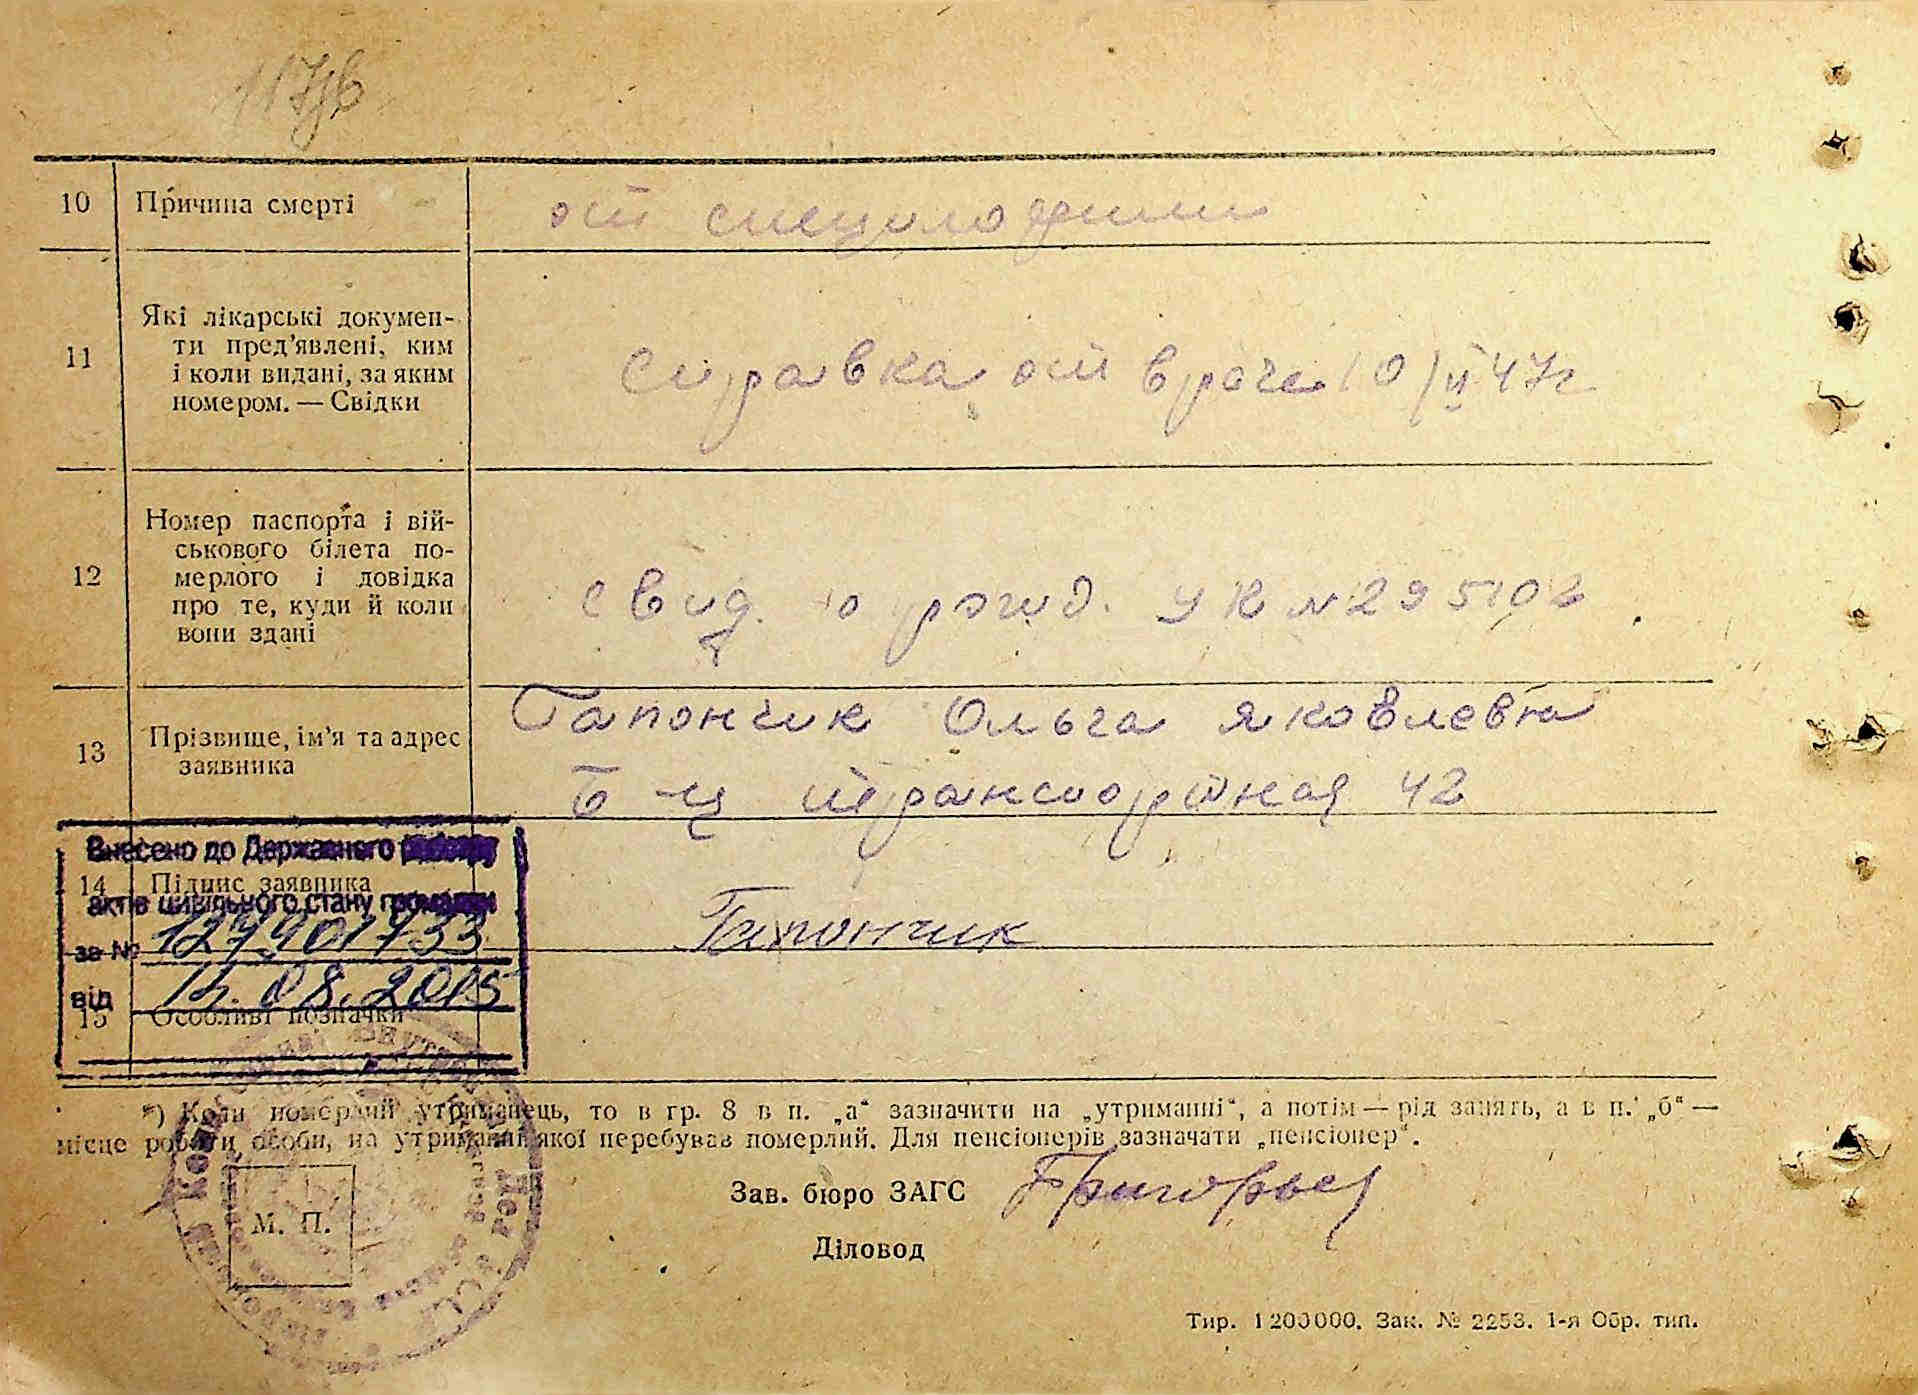 10 Причина смерті
от
11 Які лікарські докумен-
ти пред'явлені, ким
і коли видані, за яким
номером. — Свідки
Справка от врача 10/II 47г
12 Номер паспорта і вій-
ськового білета по-
мерлого і довідка
про те, куди й коли
вони здані
свид. о рожд. УК N 295102
13 Прізвище, ім'я та адрес
заявника
Гапончик Ольга Яковлевна
Б-Ц Транспортная 42
Внесено до Державного
14 Підпис заявника
Гапончик
актів цивільного стану громадян
за № 127901733
від 12.08.2015
15 Особливі позначки
*) Коли померлий утриманець, то в гр. 8 в п. „а“ зазначити на „утриманні“, а потім — рід занять, а в п. „б“ —
місце роботи особи, на утриманні якої перебував померлий. Для пенсіонерів зазначати „пенсіонер“.
Зав. бюро ЗАГС
М. П.
Діловод
Тир. 1200000. Зак. № 2253. 1-я Обр. тип.